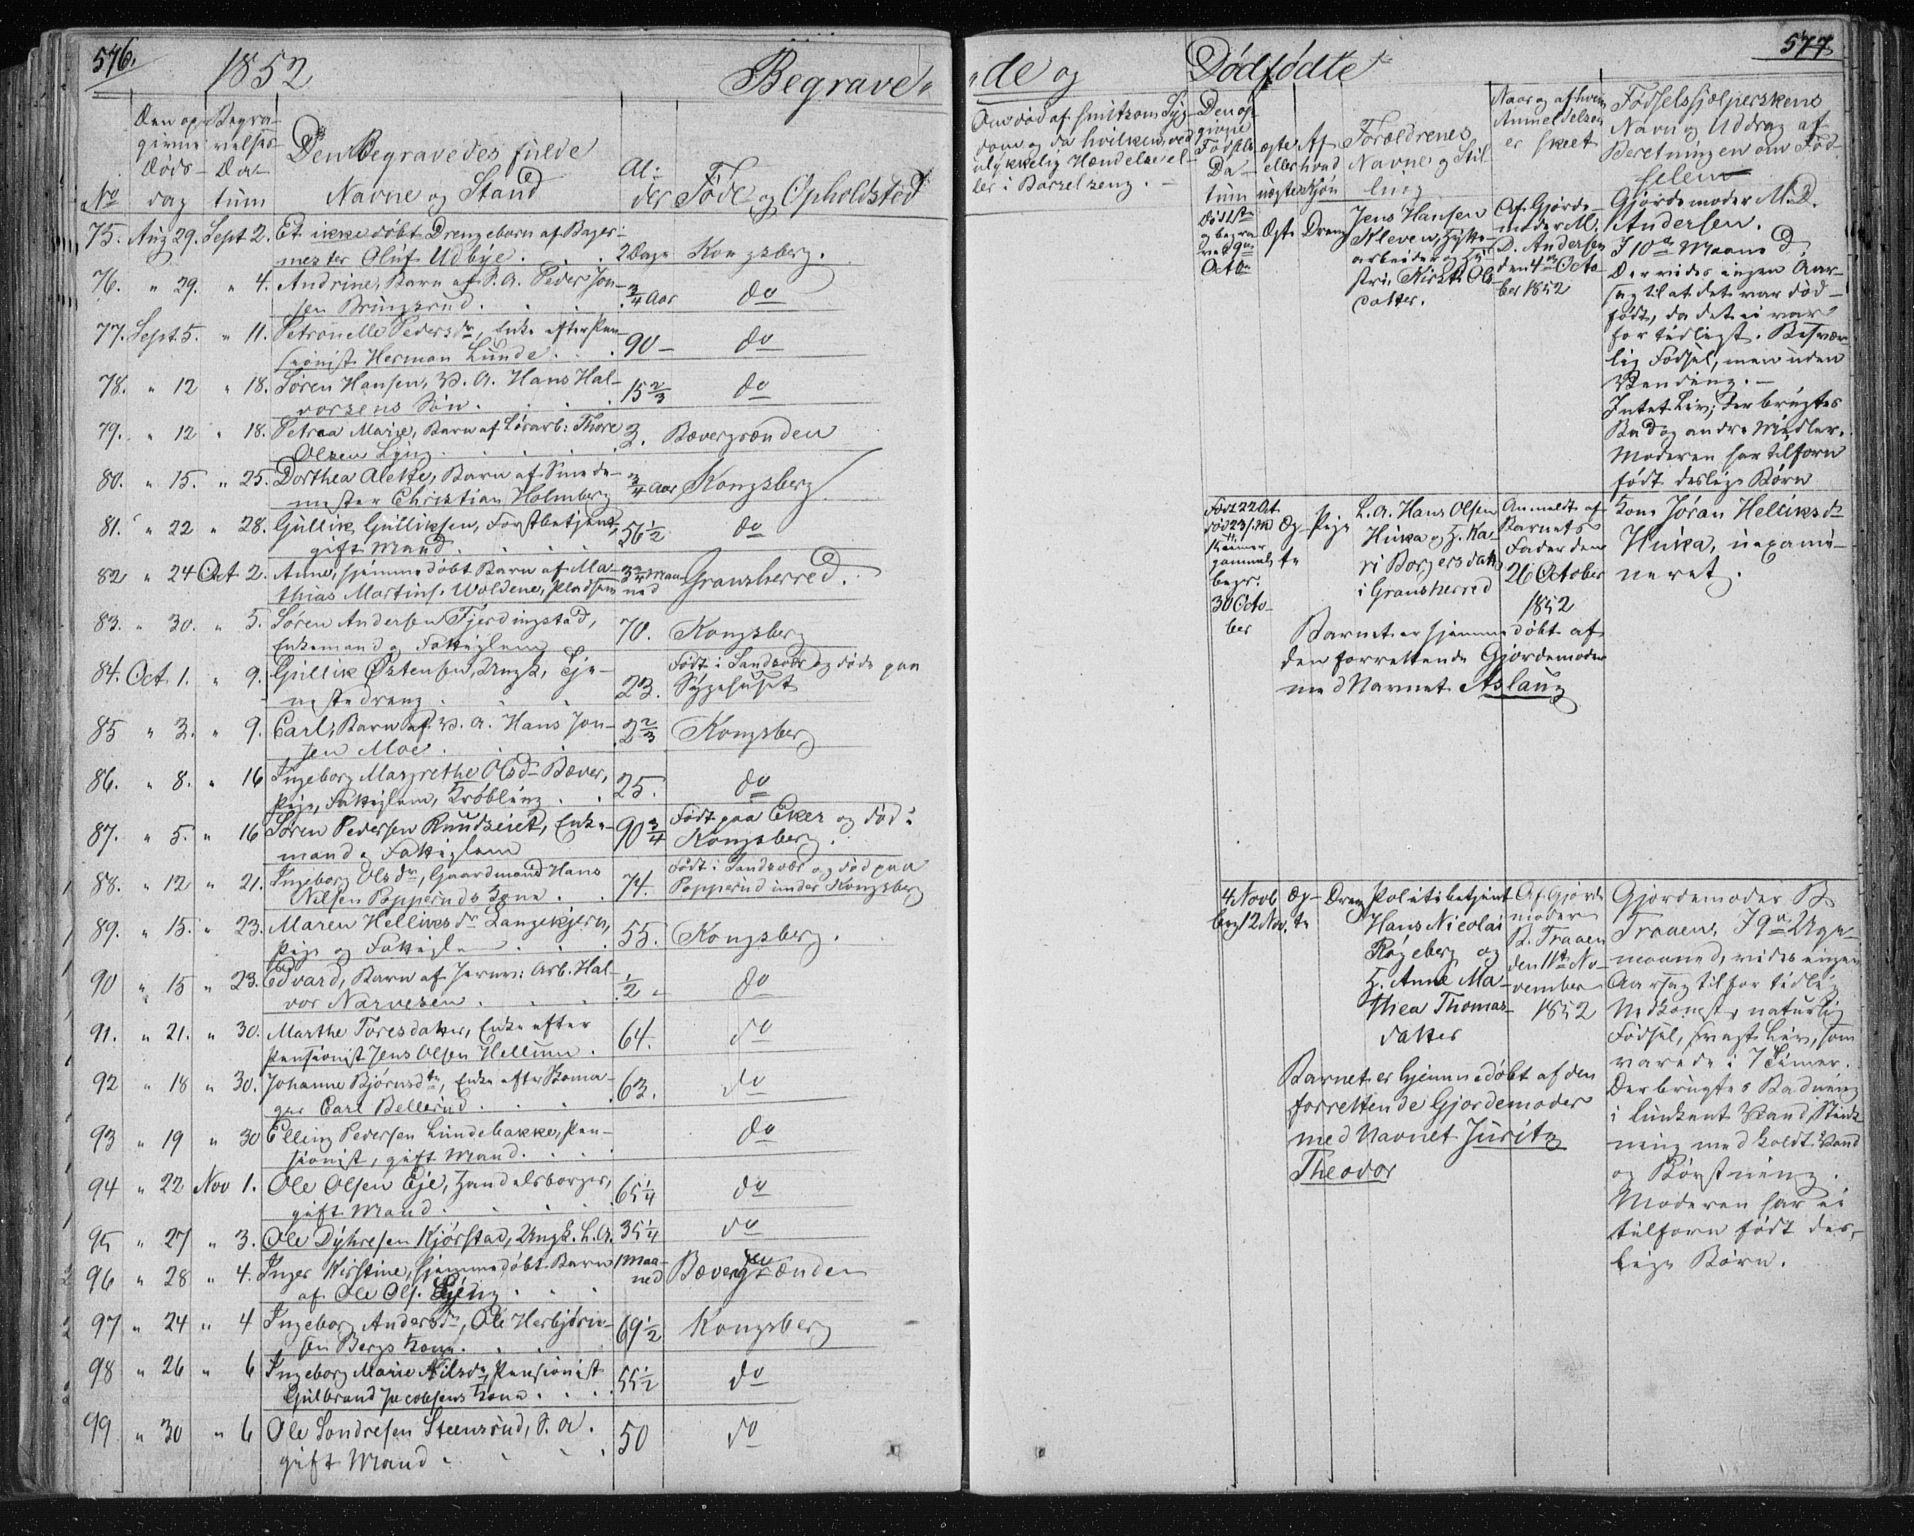 576.
1852
Begrave-
No
Den op-
givne
Døds-
dag
Begra-
velses
Da-
tum
Den Begravedes fulde
Navne og Stand
Al-
der
Føde og Opholdsted
75. Aug 29. Sept 2. Et ikkedøbt Drengebarn af Bager-
mester Oluf Udbye. 2 Dage Kongsberg.
76. " 29. " 4. Andrine, Barn af S. A. Peder Jon-
sen Bringsrud. 3/4 Aar do
77. Sept. 5. " 11. Petronelle Pedersdr, Enke efter Pen-
sionist Herman Lunde. 90 - do
78. " 12 " 18. Søren Hansen, V. A. Hans Hal-
vorsens Søn. 15 2/3 do
79. " 12 " 18. Petraa Marie, Barn af Lørarb: Thore
Olsen Lyng. 3. Bævergrænden
80. " 15. " 25. Dorthea Alette, Barn af Smede-
mester Christian Holmberg 3/4 Aar Kongsberg
81. " 22 " 28. Gullik Gulliksen, Forstbetjent,
gift Mand. 56 1/2 do
82 " 24 Oct 2. Anne, hjemmedøbt Barn af Ma-
thias Martins. Woldene, Pladsm 3 3/4 Maa-
ned Gransherred.
83. " 30. " 5. Søren Andersen Fjerdingstad,
Enkemand og Fattiglem 70. Kongsberg
84. Oct 1. " 9. Gullik Østensen, Ungk, Tje-
nestedreng. 23. Født i Sandsvær og døde paa
Sygehuset
85 " 3. " 9. Carl, Barn af V. A. Hans Jon-
sen Moe. 2 2/3 Kongsberg
86. " 8. " 16 Ingeborg Margrethe Olsdr Bæver,
Pige, Fattiglem, Krøbling. 25. do
87. " 5. " 16 Søren Pedersen Knudseiet, Enke-
mand og Fattiglem 90 3/4 Født paa Eker og død i
Kongsberg.
88. " 12 " 21. Ingeborg Olsdr, Gaardmand Hans
Nilsen Popperuds Kone. 74. Født i Sandsvær og død paa
Popperud under Kongsberg
89. " 15. " 23. Maren Helliksdr Langekjern,
Pige og Fattiglem 55. Kongsberg.
90 " 15 " 23. Edvard, Barn af Jernv: Arb. Hal-
vor Narvesen. 1/2 - do
91. " 21. " 30. Marthe Toresdatter, Enke efter
Pensionist Jens Olsen Hellum. 64. do
92 " 18 " 30. Johanne Bjørnsdtr, Enke efter Skoma-
ger Carl Bellerud. 63. do
93 " 19 " 30 Elling Pedersen Lundebakke, Pen-
sionist, gift Mand. do
94 " 22 Nov 1. Ole Olsen Eje, Handelsborger,
gift Mand. 65 1/4 do
95 " 27 " 3. Ole Dyhresen Kjørstad, Ungk. L. A. 35 1/4 do
96 " 28 " 4. Inger Kirstine, hjemmedøbt Barn
af Ole Ols. Lyng 1 Maa-
ned Bævergrænden
97 " 24 " 4 Ingeborg Andersdr, Ole Herbjørn-
sen Bergs Kone. 69 1/2 Kongsberg
98 " 26 " 6 Ingeborg Marie Nilsdr, Pensionist
Gulbrand Jacobsens Kone. 55 1/2 do
99 " 30 " 6 Ole Sondresen Steensrud, S. A.
gift Mand 50 do
577
-de og Dødfødte
Om død af smitsom Syg-
dom og da hvilken, ved
ulykkelig Hændelse el-
ler i Barselseng.
Den op-
givne
Fødsels
Da-
tum
ægte
eller
uægte
Af
hvad
Kjøn
Forældrenes
Navne og Stil-
ling
Naar og af hvem
Anmeldelsen
er skeet
Fødselshjelperskens
Navn og Uddrag af
Beretningen om Fød-
selen
Død 1ste
og begra-
vet 9de
Octo.
Ægte Dreng
Jens Hansen
Kleven, Hytte-
arbeider og Hu-
stru Kirsti Ols-
datter.
Af Gjorde-
moder M.
D. Andersen
den 4de Octo-
ber 1852
Gjordemoder M. D.
Andersen.
I 10de Maaned
Der vides ingen Aar-
sag til at det var død-
født, da det ei var
for tidligt. Besvær-
lig Fødsel, men uden
Vending. -
Intet Liv; der brugtes
Bad og andre Midler.
Moderen har tilforn
født deslige Børn
Født 22 Oct
død 23 s. M
gammel
begr.
30 Octo-
ber
Æg-
te
Pige
L. A. Hans Olsen
Huka og H. Ka-
ri Borgersdatt
i Gransherred
Anmeldt af
Barnets
Fader den
26 October
1852
Kone Jøran Helliksdr
Huka, uexami-
neret.
Barnet er hjemmedøbt af
den forrettende Gjordemoder
med Navnet Aslaug
4 Novb
beg. 12 Nov.
Æg-
te
Dreng
Politibetjent
Hans Nicolai
Røgeberg og
H. Anne Ma-
thea Thomas-
datter
Af Gjorde
moder
B. Traaen
den 11te No-
vember
1852
Gjordemoder B
Traaen, I 9de Uge-
maaned, vides ingen
Aarsag til for tidlig
Nedkomst, naturlig
Fødsel, svagt Liv, som
varede i 7 Timer.
Der brugtes Badning
i lunkent Vand, Stænk-
ning med koldt Vand
og Børstning.
Moderen har ei
tilforn født des-
lige Børn.
Barnet er hjemmedøbt af den
forrettende Gjordemoder
med Navnet Juritz
Theodor